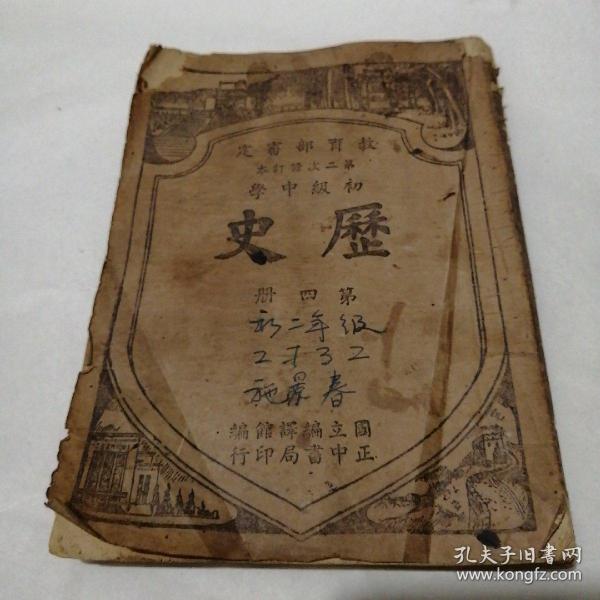 教育部審定
第二次修訂本
初級中學
歷史
第四冊
初二年級
施景春
國立編譯館編
正中書局印行
孔夫子旧书网
www.kongfz.com